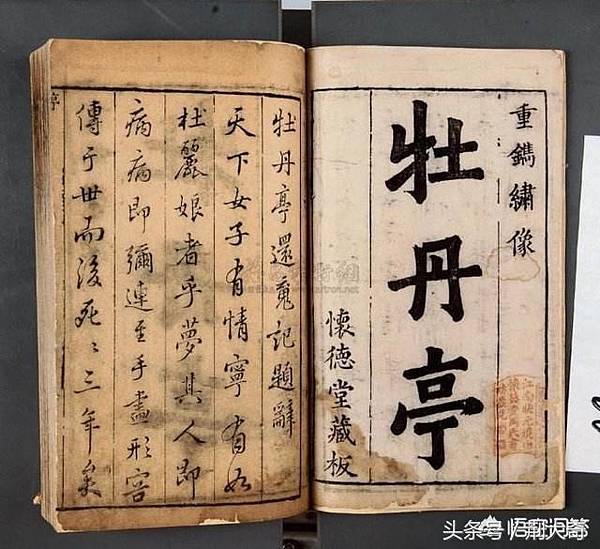 重鐫繡像
牡丹亭
懷德堂藏板
牡丹亭還魂記題辭
天下女子有情寧有如
杜麗娘者乎夢其人即
病病即彌連至手畫形容
傳于世而後死〻三年矣
头条号